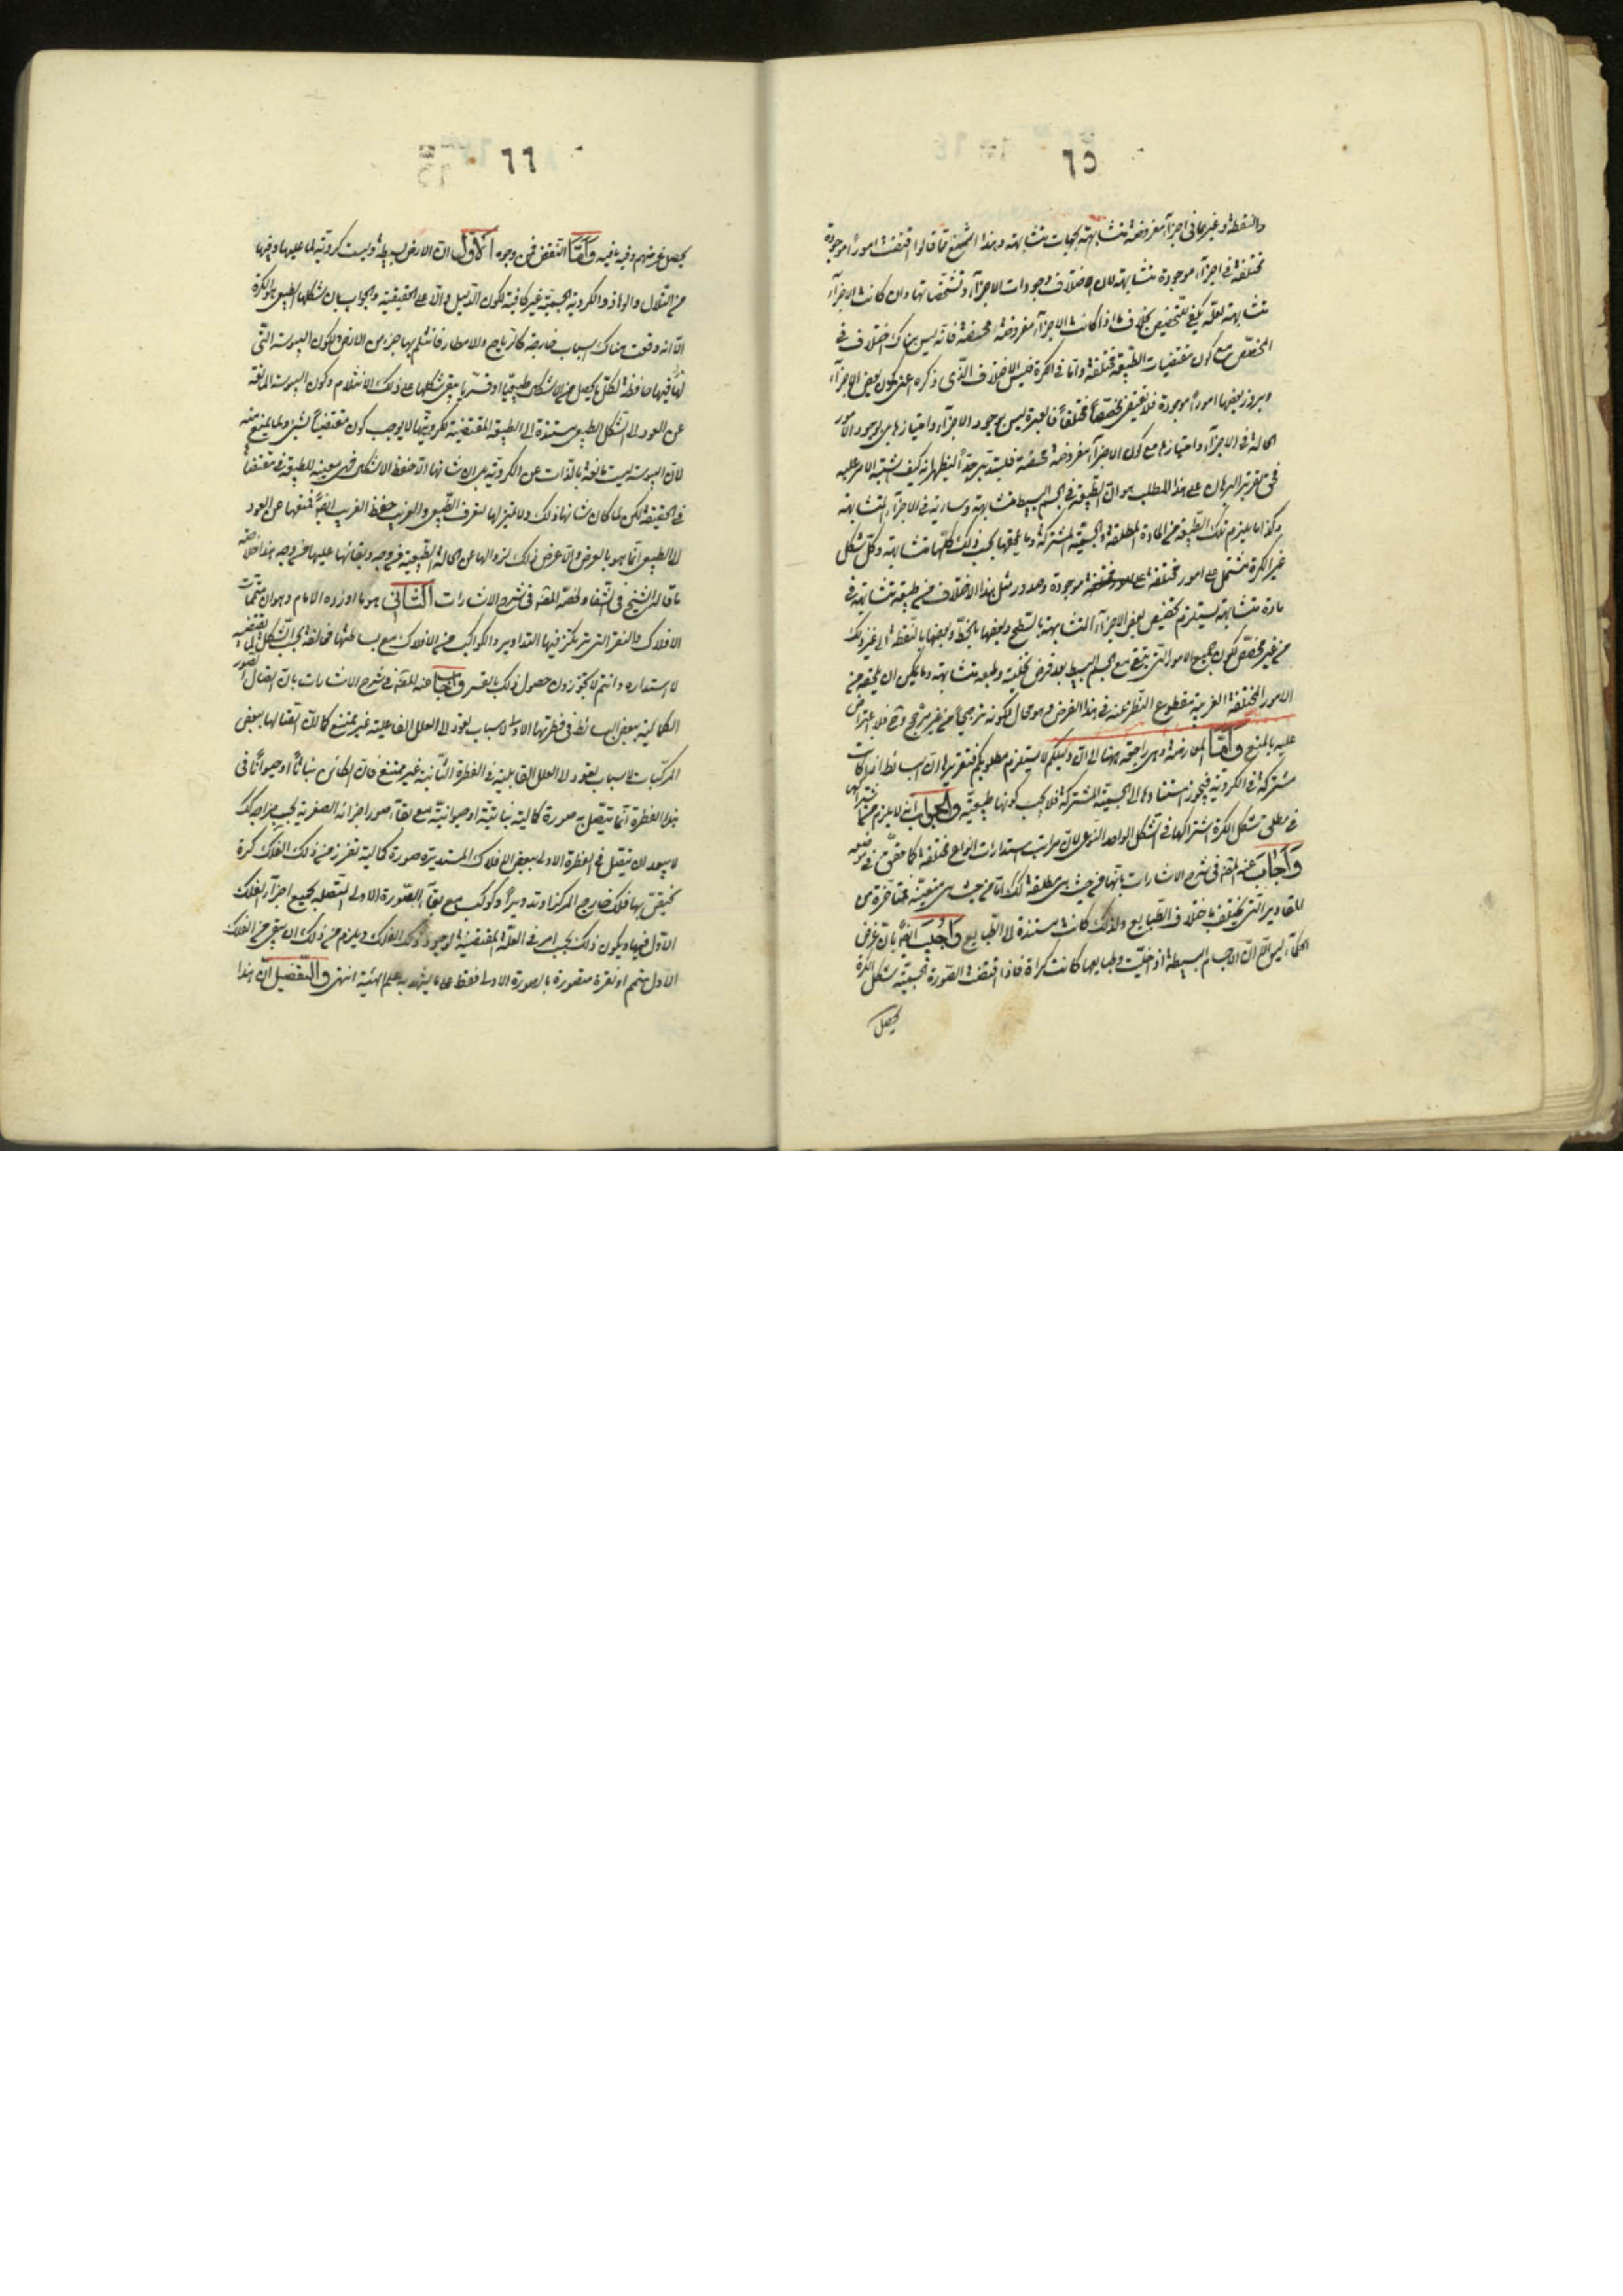 ٦٥
والنقطة وغيرهما فى اجزاء مفروضة متشابهة لجهات متشابهة وهذا اشنع مما قالوا اقتضت امورا موجودة
مختلفة فى اجزاء موجودة متشابهة لان الاختلاف وجودات الاجزاء وتشخصاتها وان كانت الاجزاء
متشابهة لعله يكفى للتخصيص بخلاف ما اذا كانت الاجزاء مفروضة محضة فانه ليس هناك اختلاف فى
المخصص مع كون مقتضيات الطبيعة مختلفة واما فى الكرة فليس الاختلاف الذى ذكره اعنى كون بعض الاجزاء
وبروز بعضها امورا موجودة فلا تقتضى مخصصا مختلفا فالعبرة ليس بوجود الاجزاء وامتيازها بل بوجود الامور
الحالة فى الاجزاء وامتيازها مع كون الاجزاء مفروضة محضة فليتدبر جدا ليظهر انه كيف اشتبه الامر عليه
فحق تقرير البرهان على هذا المطلب هو ان الطبيعة فى الجسم البسيط متشابهة وسارية فى الاجزاء المتشابهة
وكذا ما يلزم تلك الطبيعة من المادة المطلقة والجسمية المشتركة وما يلحقها بحسب ذلك كلها متشابهة وكل شكل
غير الكرة يشتمل على امور مختلفة موجودة وصدور مثل هذا الاختلاف من طبيعة متشابهة فى
مادة متشابهة يستلزم تخصيص بعض الاجزاء المتشابهة بالسطح وبعضها بالخط وبعضها بالنقطة الى غير ذلك
من غير مخصص لكون جميع الامور التى تبقى مع الجسم البسيط بعد فرض تخليته وطبعه متشابهة وما يمكن ان يلحقه من
الامور المختلفة الغريبة مقطوع النظر عنه فى هذا الفرض وهو محال لكونه ترجيحا من غير مرجح وح فلا اعتراض
عليه بالمنع واما المعارضة وهى راجعة ههنا الى ان دليلكم لا يستلزم مطلوبكم فتقريرها ان البسائط اذا كانت
مشتركة فى الكروية فيجوز استنادها الى الجسمية المشتركة فلا يجب كونها طبيعية والجواب انه لا يلزم من اشتراكها
فى مطلق شكل الكرة اشتراكها فى الشكل الواحد النوعى لان مراتب استدارات انواع مختلفة كما حقق فى موضعه
وأجاب عنه المصنف فى شرح الاشارات بانها من حيث هى مطلقة كذلك اما من حيث هى متعينة بمقاديرها من
المقادير التى يختلف باختلاف الطبايع ولذلك كانت مستندة الى الطبايع وأجيب ايضا بان غرض
الحكماء ليس الا ان الاجسام البسيطة اذا خليت وطبايعها كانت كراة فاذا اقتضت الصورة الجسمية شكل الكرة
يحصل
٦٦
يحصل غرضهم وفيه ما فيه واما النقض فمن وجوه الاول ان الارض بسيطة وليست كروية لما عليها وفيها
من التلال والوهاد والكروية الحسية غير كافية لكون الدليل دالا على الحقيقية والجواب بان شكلها الطبيعى هو الكرة
الا انه وقعت هناك اسباب خارجة كالرياح والامطار فانثلم بها جزء من الارض ولكون اليبوسة التى
لها فيها حافظة لكل ما يحصل من الاشكال طبيعيا او قسريا يبقى شكلها على ذلك الانثلام وكون اليبوسة المانعة
عن العود الى الشكل الطبيعى مستندة الى الطبيعة المقتضية لكرويتها لا يوجب كون مقتضيا لشئ ولما يمنع منه
لان اليبوسة ليست مانعة بالذات عن الكروية بل ان شانها الا حفظ الاشكال فهى معينة للطبيعة فى مقتضاها
فى الحقيقة لكن لما كان شانها ذلك ولا تميز لها لتعرف الطبيعى والغريب حفظ الغريب ايضا فمنعها عن العود
الى الطبيعى انما هو بالعرض وان عرض ذلك لزوالها عن الحالة الطبيعية من وجه وبقائها عليها من وجه هذا خلاصة
ما قاله الشيخ فى الشفاء ولخصه المصنف فى شرح الاشارات الثانى هو ما اورده الامام وهو ان متممات
الافلاك والنقر التى ترتكز فيها التداوير والكواكب من الافلاك مع بساطتها مخالفة بحسب الشكل لما يقتضيه
الاستدارة وانتم لا تجوزون حصول ذلك بالقسر واجاب عنه المصنف فى شرح الاشارات بان اتصال الصور
الكمالية ببعض البسائط فى فطرتها الاولى لاسباب تعود الى العلل الفاعلية غير ممتنع كما ان اتصالها ببعض
المركبات لاسباب تعود الى العلل القابلية فى الفطرة الثانية غير ممتنع فان الكائن نباتا او حيوانا فى
هذه الفطرة انما تتصل به صورة كمالية نباتية او حيوانية مع بقاء صور اجزائه العنصرية بحسب مزاجه كذلك
لا يبعد ان تتصل فى الفطرة الاولى ببعض الافلاك المستديرة صورة كمالية تفرز من ذلك الفلك كرة
تختص بها فلك خارج المركز او تدويرا او كوكب مع بقاء الصورة الاولى المتصلة بجميع اجزاء الفلك
الاول فيها ويكون ذلك بحسب امر فى العلة المقتضية لوجود ذلك الفلك ويلزم من ذلك ان يبقى من الفلك
الاول متمم او نقرة متصورة بالصورة الاولى فقط على ما يشهد به علم الهيئة انتهى والتفصيل ان هذا